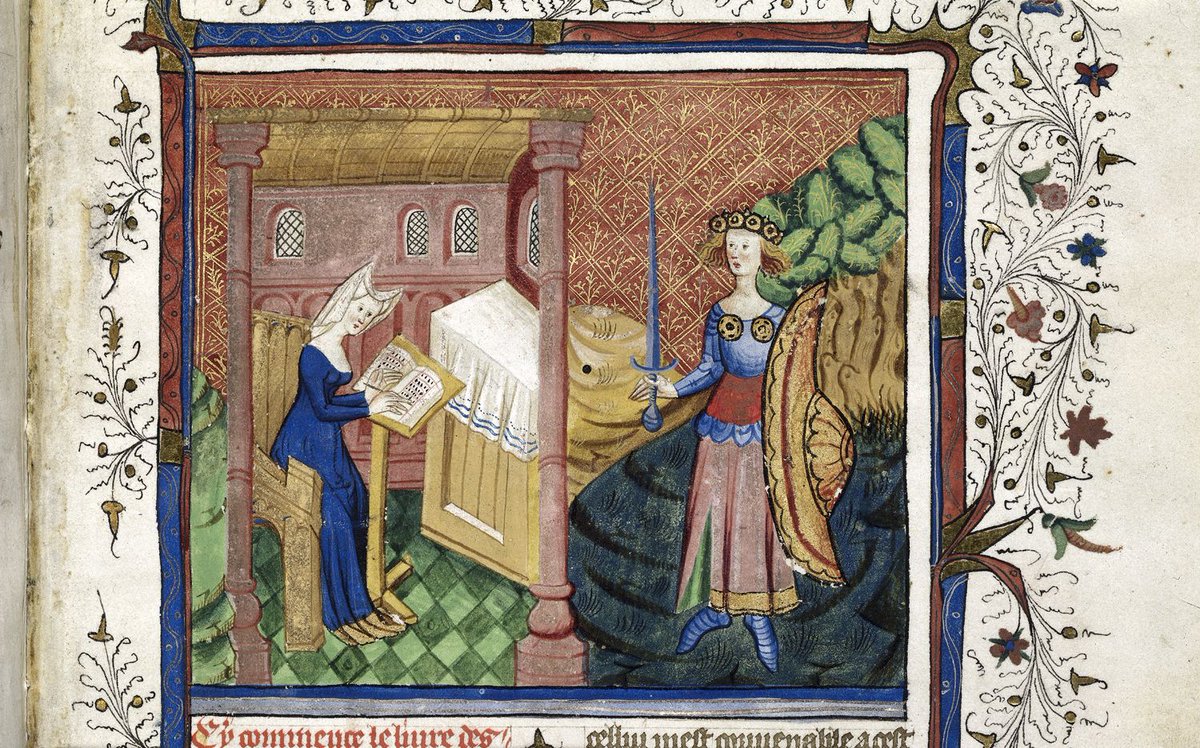 Cy commence le livre des
cellui mest couvenable a cest